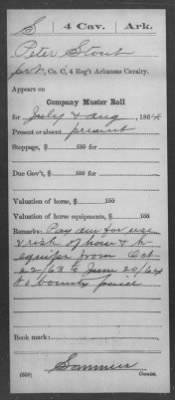 S 4 Cav. Ark.
Peter Stout
Pvt, Co. C, 4 Reg't Arkansas Cavalry.
Appears on
Company Muster Roll
for July & Aug, 1864
Present or absent present
Stoppage, $ 100 for
Due Gov't, $ 100 for
Valuation of horse, $ 100
Valuation of horse equipments, $ 100
Remarks: Pay due for use
& risk of horse & h
equipts from Oct
22/63 to June 20/64
bounty paid
Book mark:
(659) Copyist.